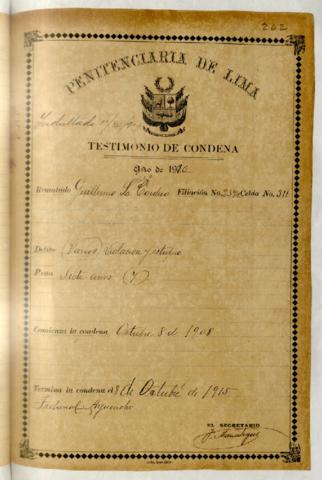 262
PENITENCIARIA DE LIMA
TESTIMONIO DE CONDENA
Año de 1910
Rematado Guillermo La Filiación No. Celda No. 311
Delito (Varios) Violación y estupro
Pena Siete años (7)
Comienza la condena Octubre 8 de 1908
Termina la condena el 8 de Octubre de 1915
Tribunal
EL SECRETARIO